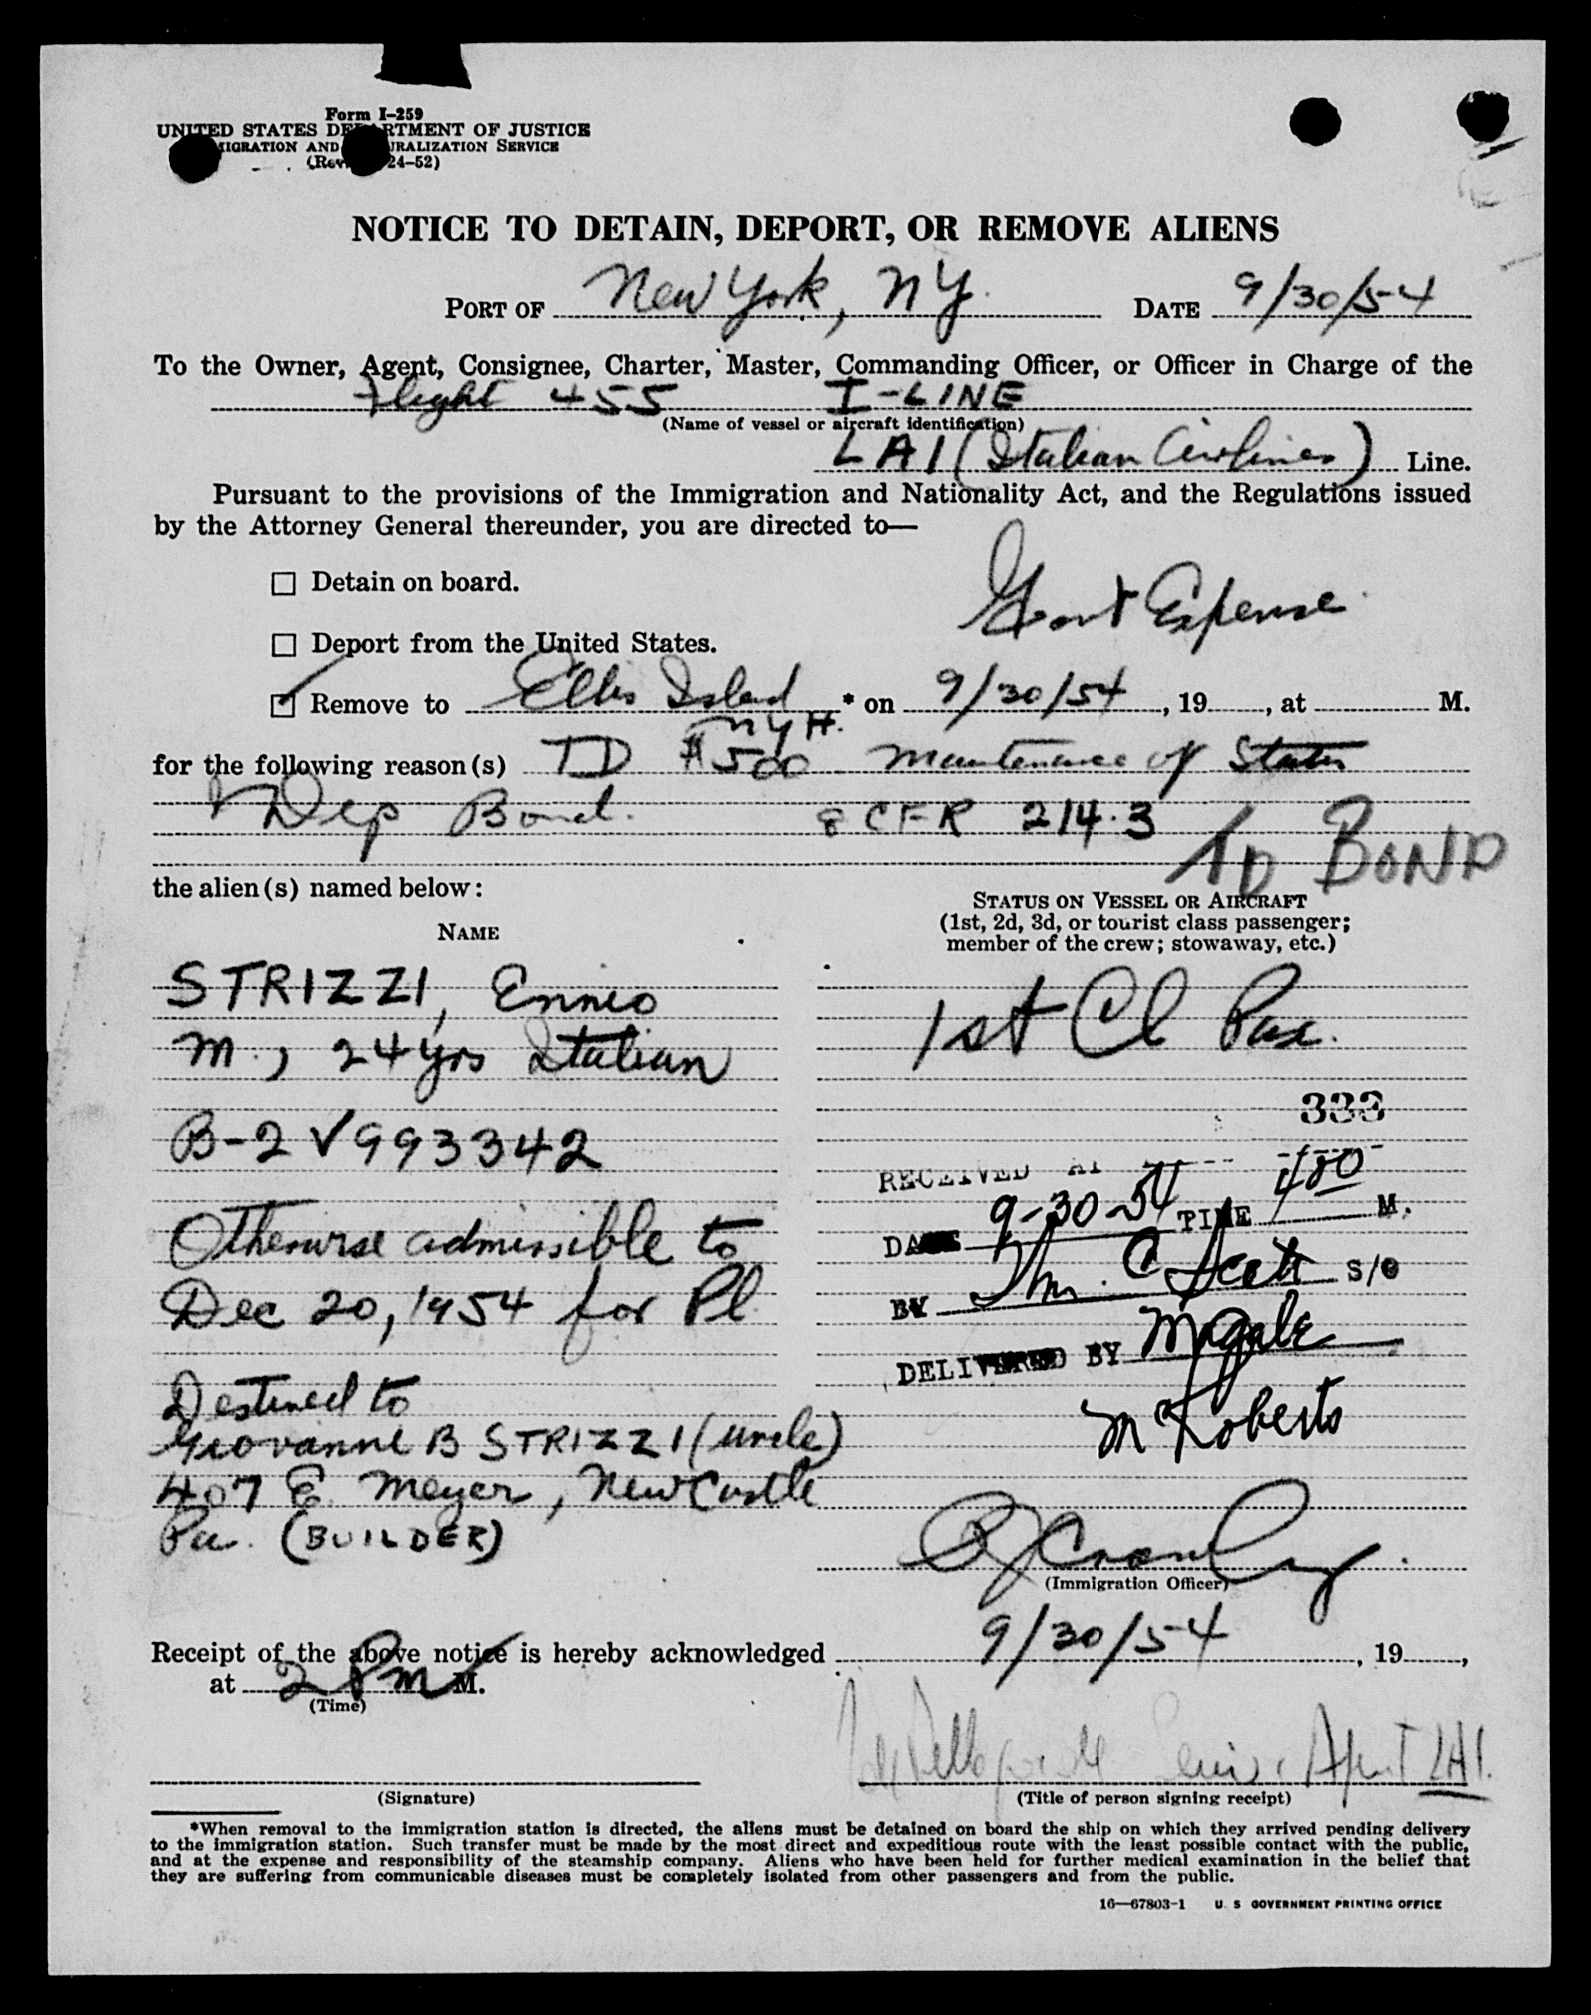 Form I-259
UNITED STATES DEPARTMENT OF JUSTICE
IMMIGRATION AND NATURALIZATION SERVICE
(Rev. 24-52)
NOTICE TO DETAIN, DEPORT, OR REMOVE ALIENS
PORT OF New York, NY. DATE 9/30/54
To the Owner, Agent, Consignee, Charter, Master, Commanding Officer, or Officer in Charge of the
Flight 455 I-LINE
(Name of vessel or aircraft identification)
LAI (Italian Airlines) Line.
Pursuant to the provisions of the Immigration and Nationality Act, and the Regulations issued
by the Attorney General thereunder, you are directed to—
☐ Detain on board.
Govt Expense
☐ Deport from the United States.
☑ Remove to Ellis Island NYH. * on 9/30/54, 19 , at M.
for the following reason(s) TD $500 Maintenance of Status
& Dep Bond. 8 CFR 214.3
TD BOND
the alien(s) named below:
STATUS ON VESSEL OR AIRCRAFT
(1st, 2d, 3d, or tourist class passenger;
member of the crew; stowaway, etc.)
NAME
STRIZZI, Ennio
M., 24 yrs Italian
1st Cl Pax.
B-2 V993342
333
RECEIVED AT
DATE 9-30-54 TIME 480 M.
BY Thm. C Scott S/O
DELIVERED BY
M Roberts
Otherwise admissible to
Dec 20, 1954 for Pl
Destined to
Giovanni B STRIZZI (uncle)
407 E. Meyer, New Castle
Pa. (BUILDER)
(Immigration Officer)
Receipt of the above notice is hereby acknowledged 9/30/54, 19 ,
at 2 PM M.
(Time)
LAI.
(Signature)
(Title of person signing receipt)
*When removal to the immigration station is directed, the aliens must be detained on board the ship on which they arrived pending delivery
to the immigration station. Such transfer must be made by the most direct and expeditious route with the least possible contact with the public,
and at the expense and responsibility of the steamship company. Aliens who have been held for further medical examination in the belief that
they are suffering from communicable diseases must be completely isolated from other passengers and from the public.
16—67803-1 U. S. GOVERNMENT PRINTING OFFICE